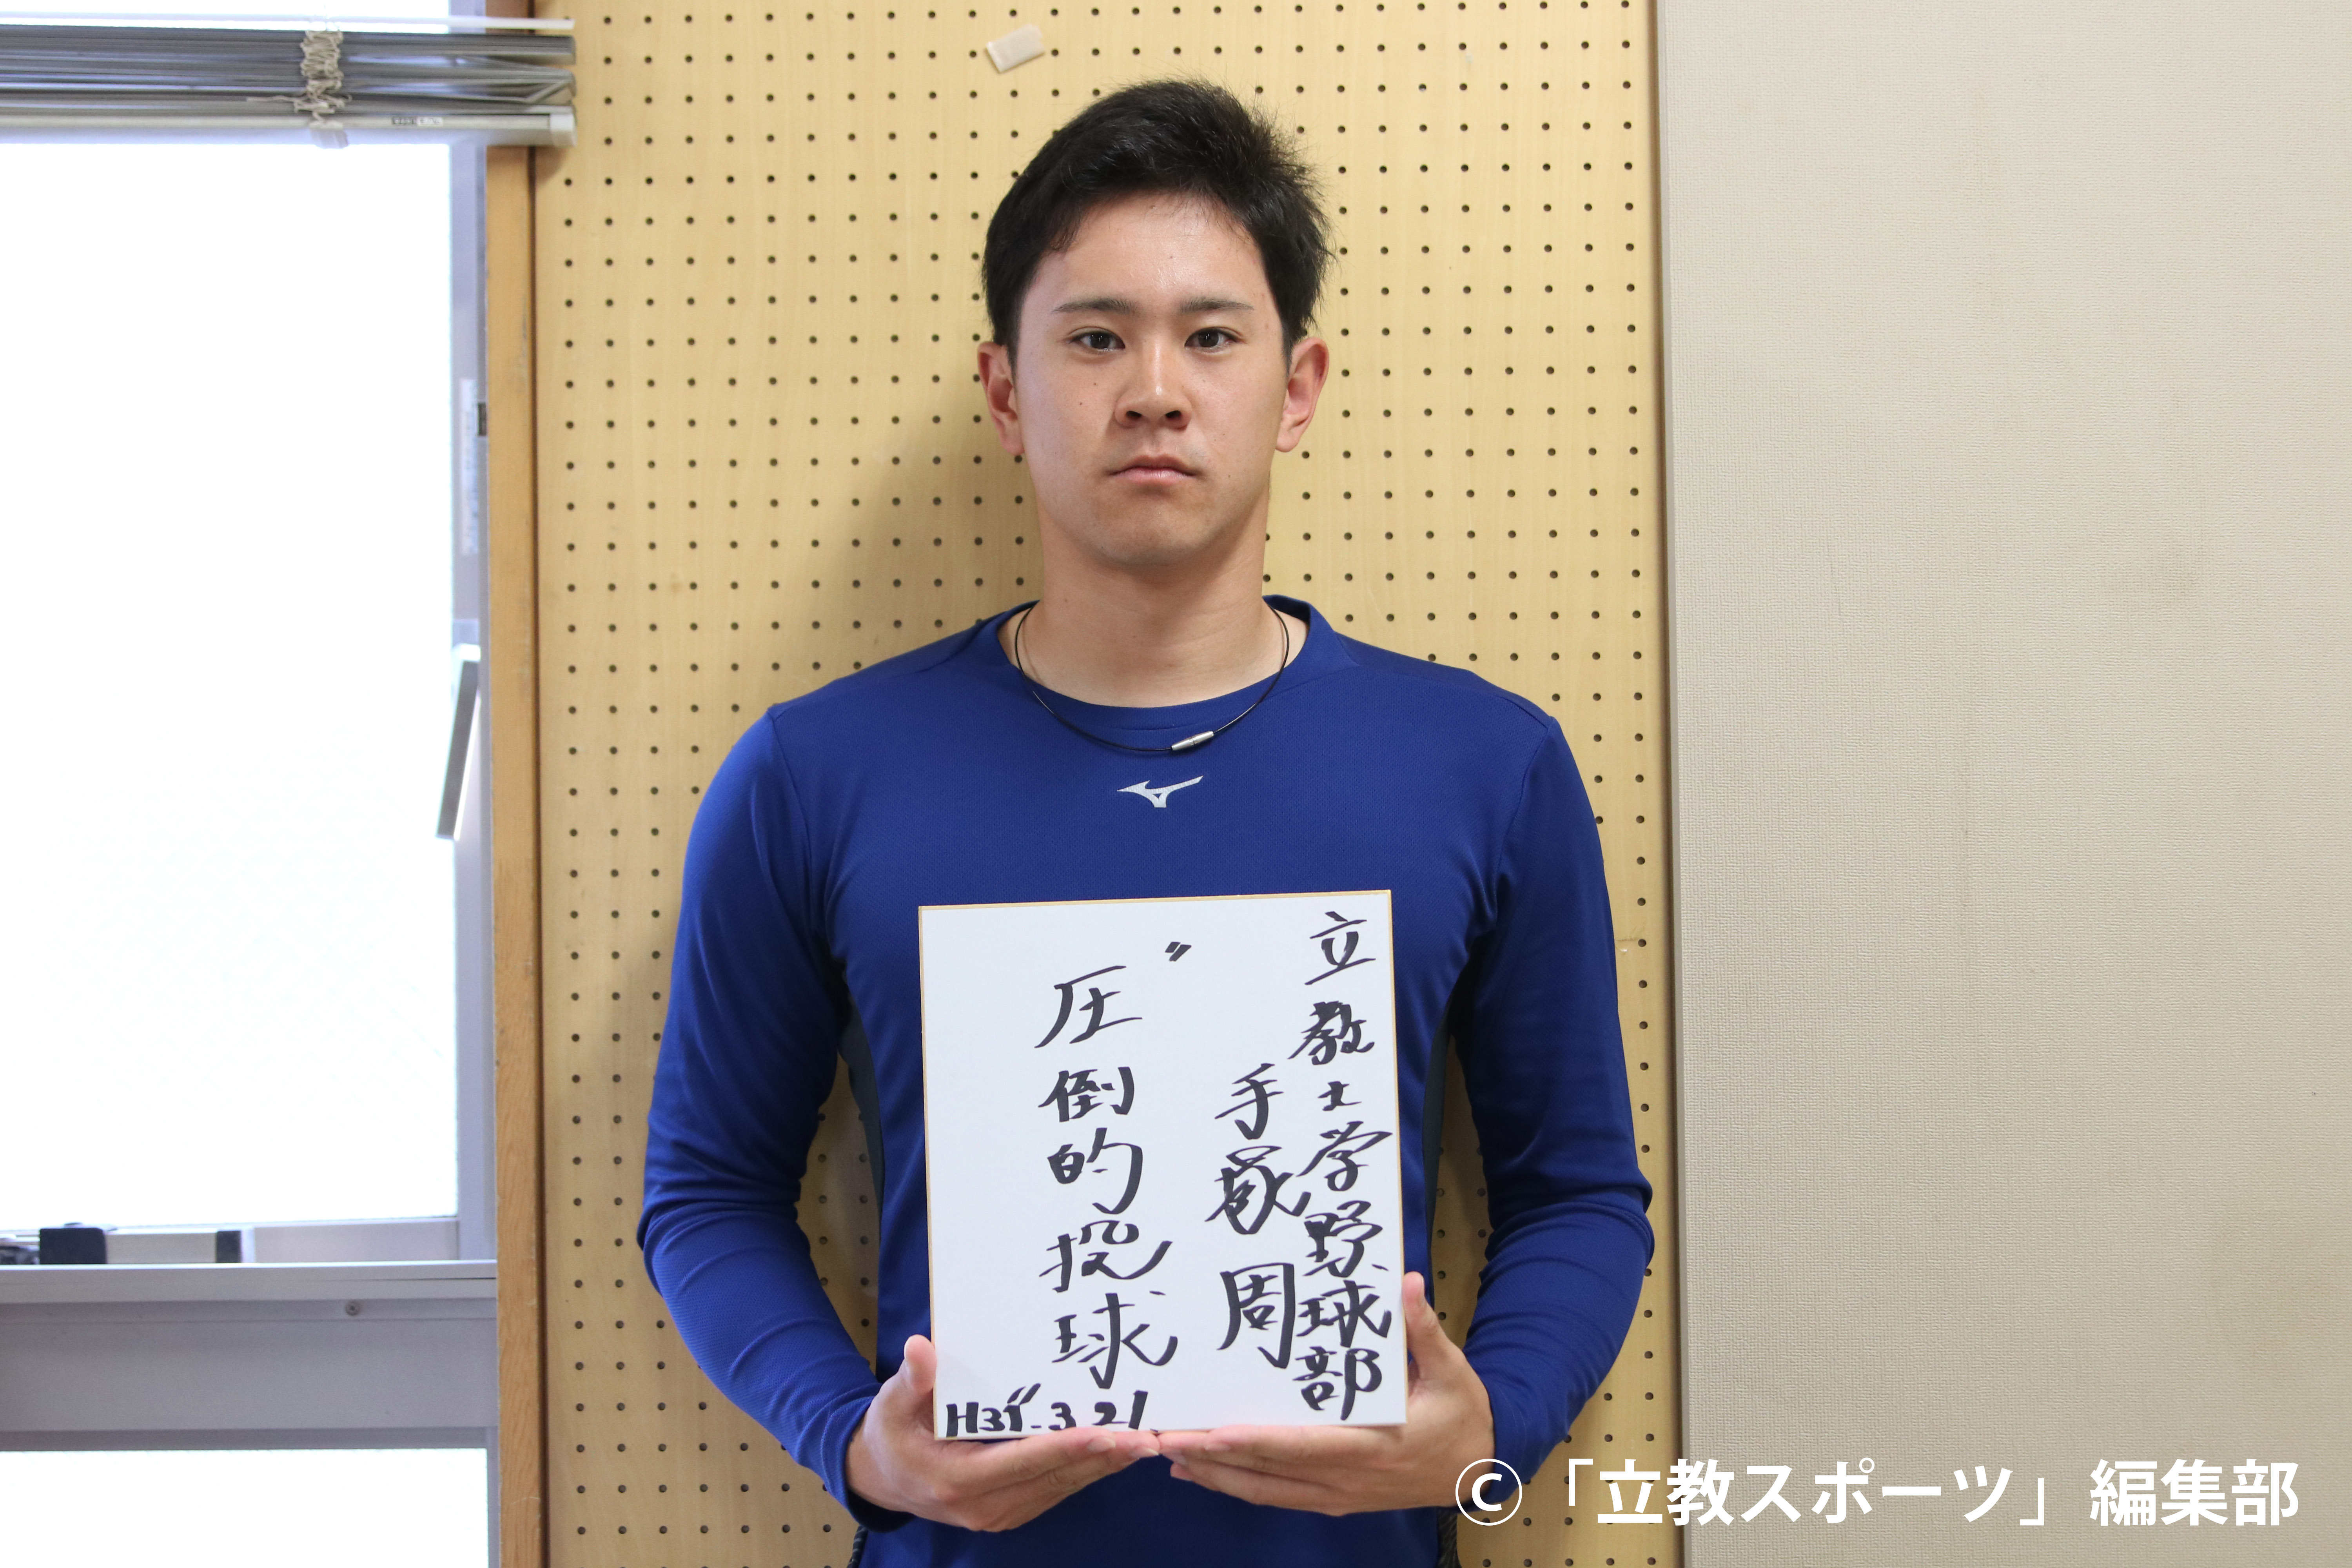 立教大学野球部
手塚周
〃圧倒的投球〃
H31.3.21
©「立教スポーツ」編集部